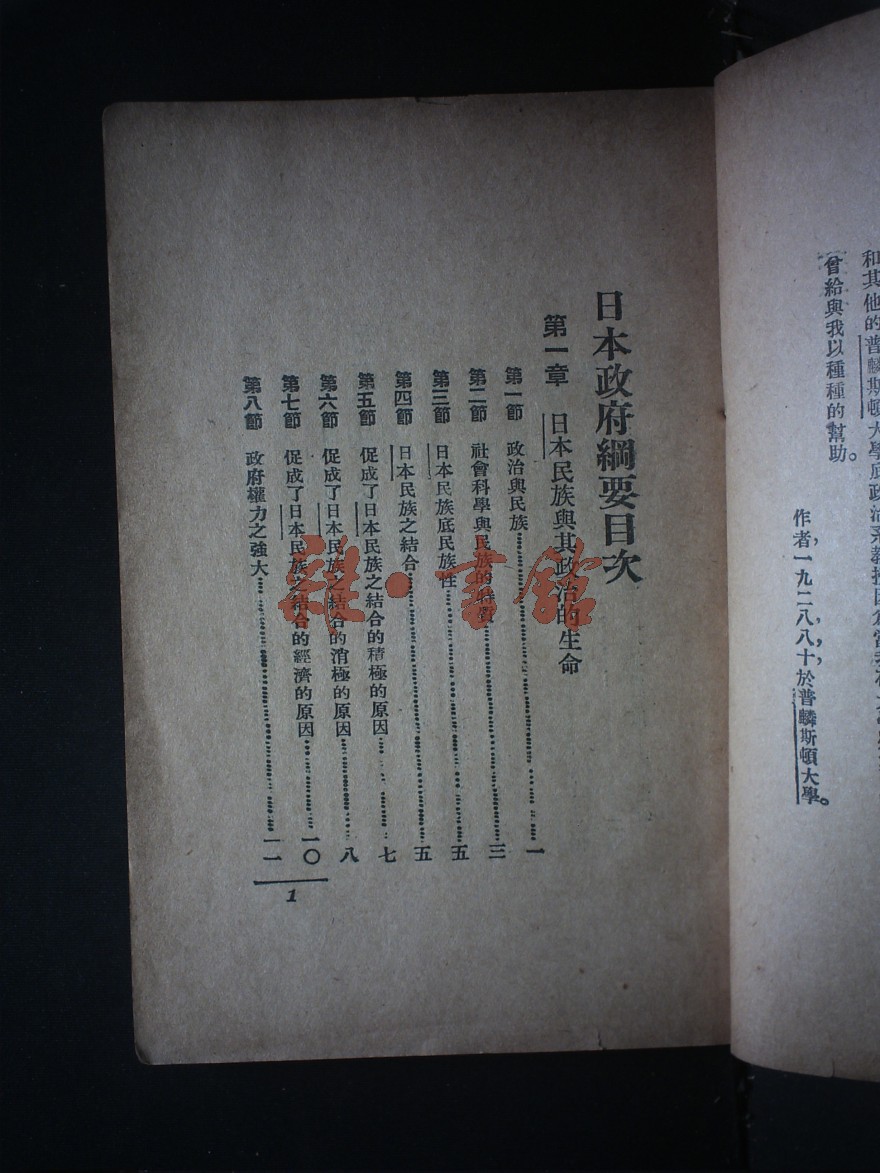 和其他的普麟斯頓大學底政治系教授因爲
曾給與我以種種的幫助。
作者，一九二八，八，十，於普麟斯頓大學。
日本政府綱要目次
第一章 日本民族與其政治的生命
第一節 政治與民族 一
第二節 社會科學與民族的特質 三
第三節 日本民族底民族性 五
第四節 日本民族之結合 五
第五節 促成了日本民族之結合的積極的原因 七
第六節 促成了日本民族之結合的消極的原因 八
第七節 促成了日本民族之結合的經濟的原因 一〇
第八節 政府權力之強大 一一
1
雜·書館